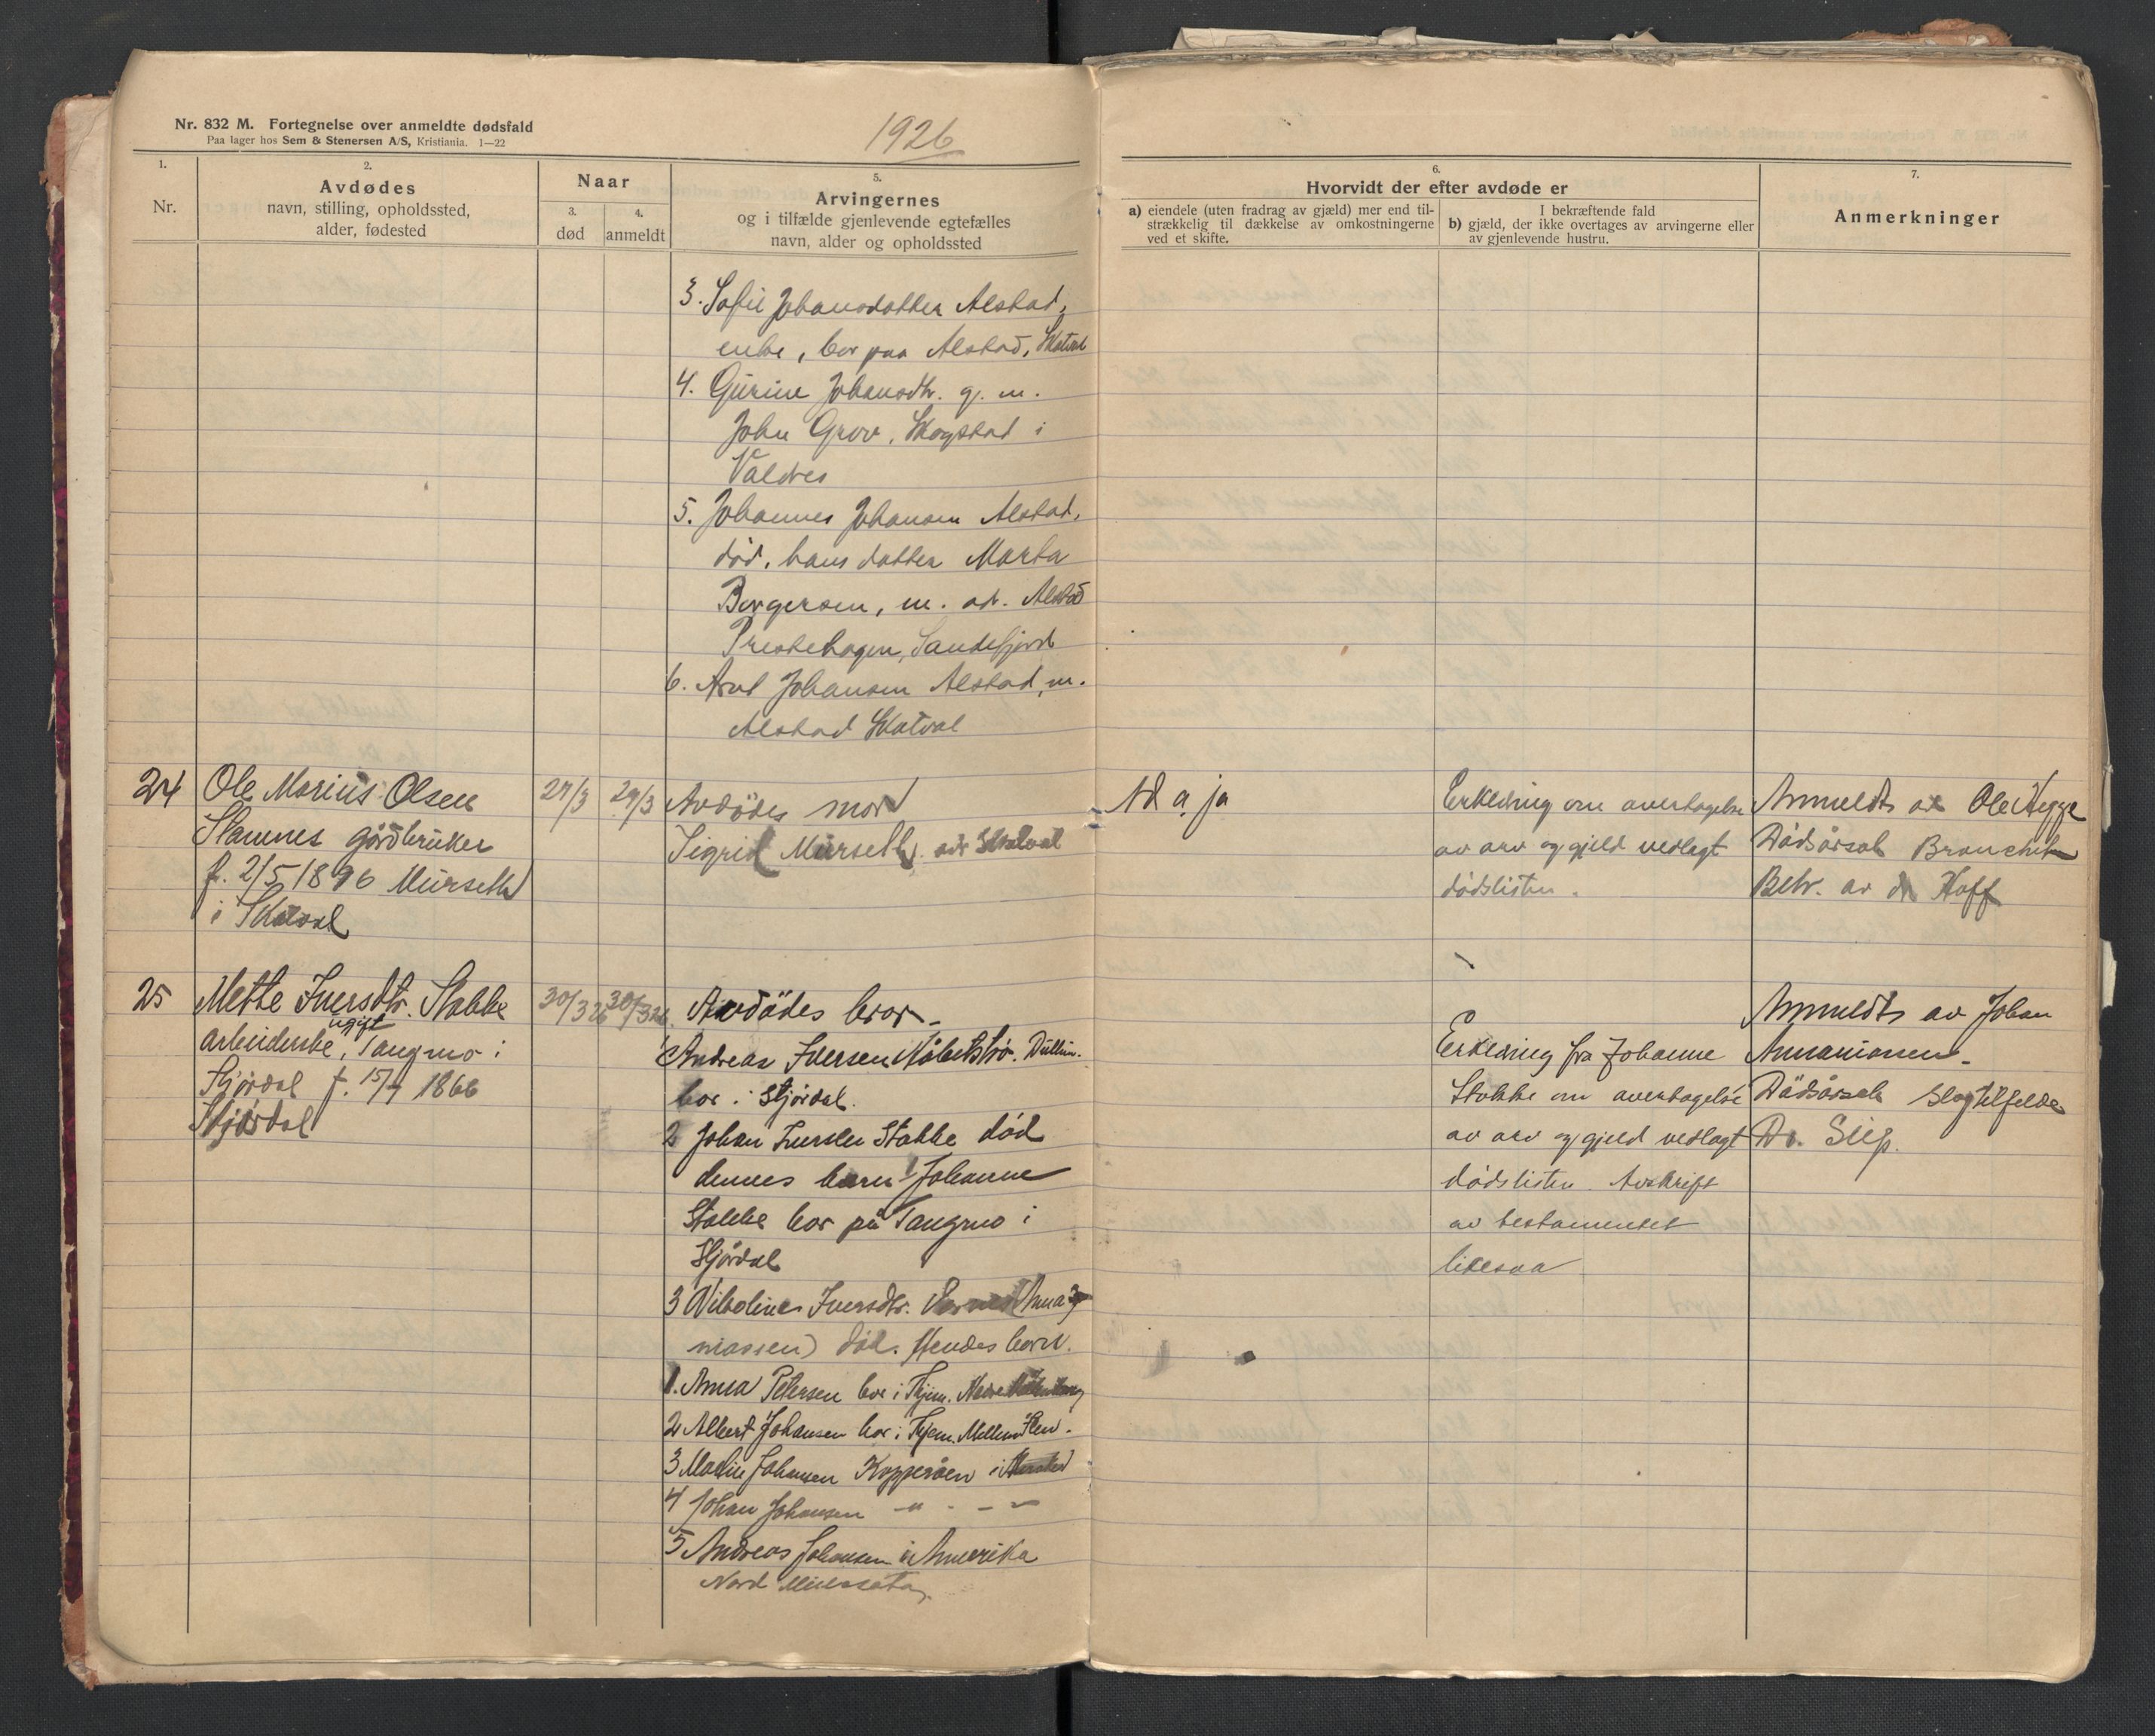 Nr. 832 M. Fortegnelse over anmeldte dødsfald
Paa lager hos Sem & Stenersen A/S, Kristiania. 1—22
1926
1.
Nr.
2.
Avdødes
navn, stilling, opholdssted,
alder, fødested
Naar
3.
død
4.
anmeldt
5.
Arvingernes
og i tilfælde gjenlevende egtefælles
navn, alder og opholdssted
6.
Hvorvidt der efter avdøde er
a) eiendele (uten fradrag av gjæld) mer end til-
strækkelig til dækkelse av omkostningerne
ved et skifte.
I bekræftende fald
b) gjæld, der ikke overtages av arvingerne eller
av gjenlevende hustru.
7.
Anmerkninger
3. Sofie Johansdatter Alstad,
enke, bor paa Alstad, Skatval
4. Gurine Johansdtr. g. m.
John Grov, Skogstad i
Valdres
5. Johannes Johansen Alstad,
død, hans datter Marta
Borgersen, m. adr. Alstad
Prestehagen, Sandefjord
6. Arnt Johansen Alstad, m.
Alstad Skatval
24
Ole Marius Olsen
Stamnes gårdbruker
f. 2/5 1896 Murseth
i Skatval
27/3
29/3
Avdødes mor
Sigrid Murseth adr Skatval
Ad a, ja
Erklæring om overtagelse
av arv og gjeld vedlagt
dødslisten.
Anmeldt av Ole Hegge
Dødsårsak
Behr. av dr Hoff
25
Mette Iversdtr. Stokke
ugift
arbeiderske, Tangmo i
Stjørdal f. 15/4 1866
Stjørdal
30/3 26
30/3 26
Avdødes bror
1 Andreas Iversen
bor i Stjørdal.
2 Johan Iversen Stokke død
dennes barn: Johanne
Stokke bor på Tangmo i
Stjørdal
3 Iversdtr.
død. Hendes born.
1. Anna Petersen bor i Thjem.
2 Albert Johansen bor i Thjem. Mellem Ilen.
3 Johansen Kopperåen i
4 Johan Johansen — " — — "
5 Andreas Johansen i Amerika
Nord
Erklæring fra Johanne
Stokke om overtagelse
av arv og gjeld vedlagt
dødslisten. Avskrift
av testamentet
likesaa
Anmeldt av Johan
Annaniassen
Dødsårsak Slagtilfelde
Dr.